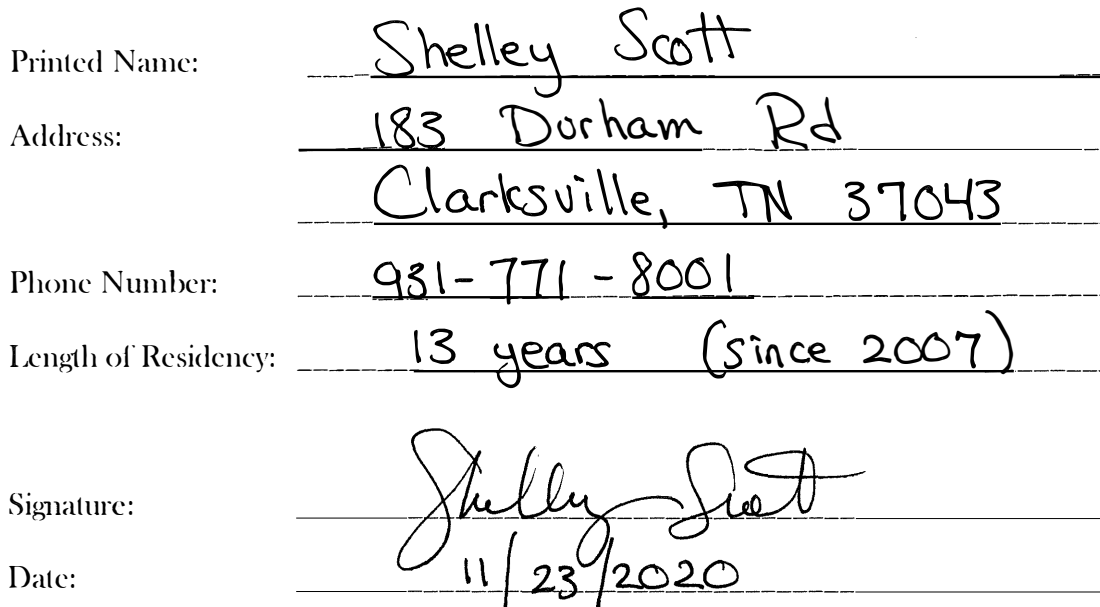 Printed Name: Shelley Scott
Address: 183 Dorham Rd
Clarksville, TN 37043
Phone Number: 931-771-8001
Length of Residency: 13 years (since 2007)
Signature: Shelley Scott
Date: 11/23/2020